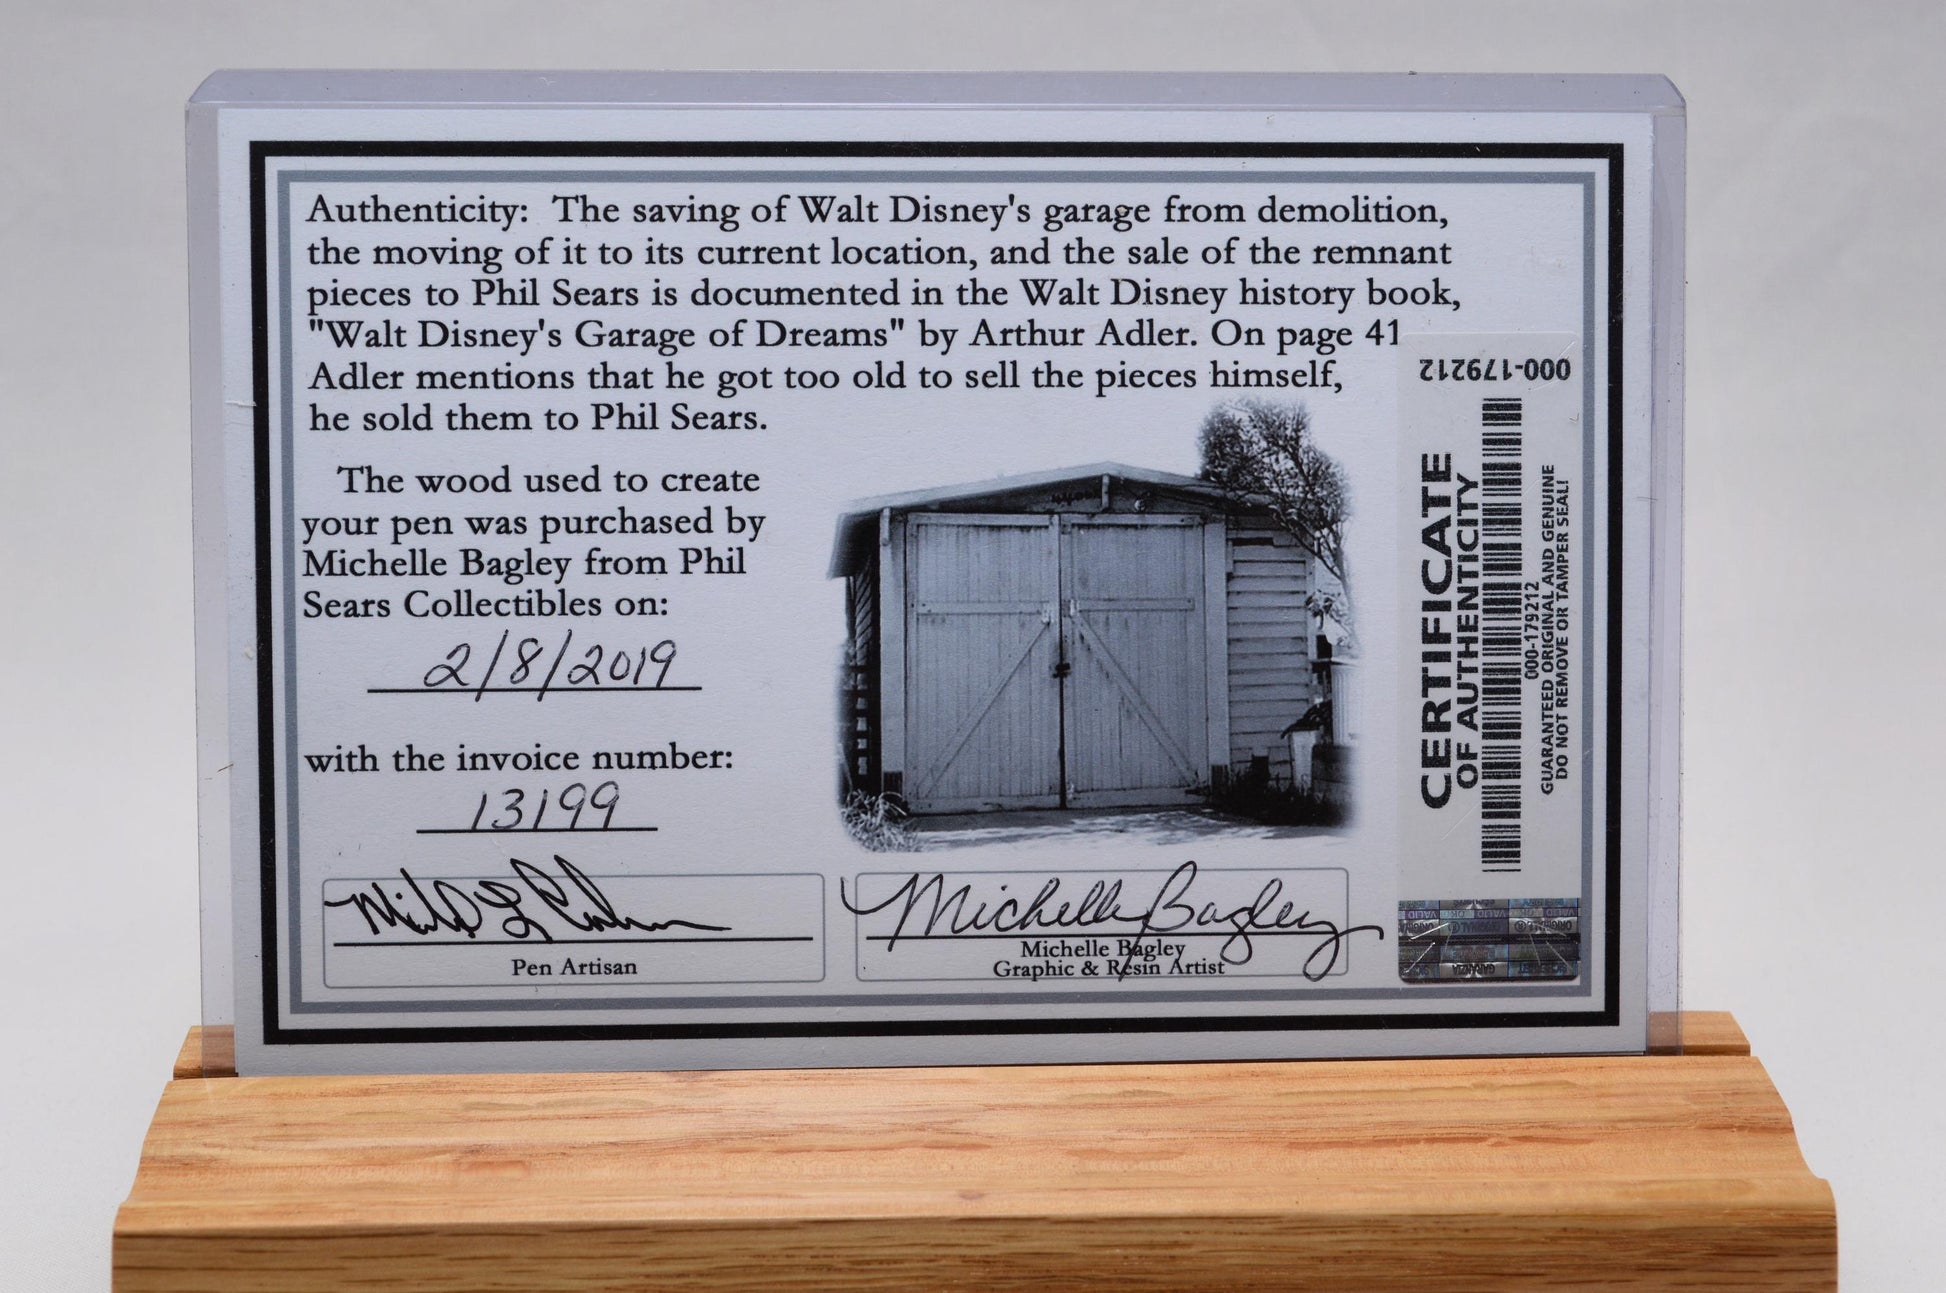 Authenticity: The saving of Walt Disney's garage from demolition,
the moving of it to its current location, and the sale of the remnant
pieces to Phil Sears is documented in the Walt Disney history book,
"Walt Disney's Garage of Dreams" by Arthur Adler. On page 41
Adler mentions that he got too old to sell the pieces himself,
he sold them to Phil Sears.
The wood used to create
your pen was purchased by
Michelle Bagley from Phil
Sears Collectibles on:
2/8/2019
with the invoice number:
13199
Pen Artisan
Michelle Bagley
Michelle Bagley
Graphic & Resin Artist
000-179212
CERTIFICATE
OF AUTHENTICITY
000-179212
GUARANTEED ORIGINAL AND GENUINE
DO NOT REMOVE OR TAMPER SEAL!